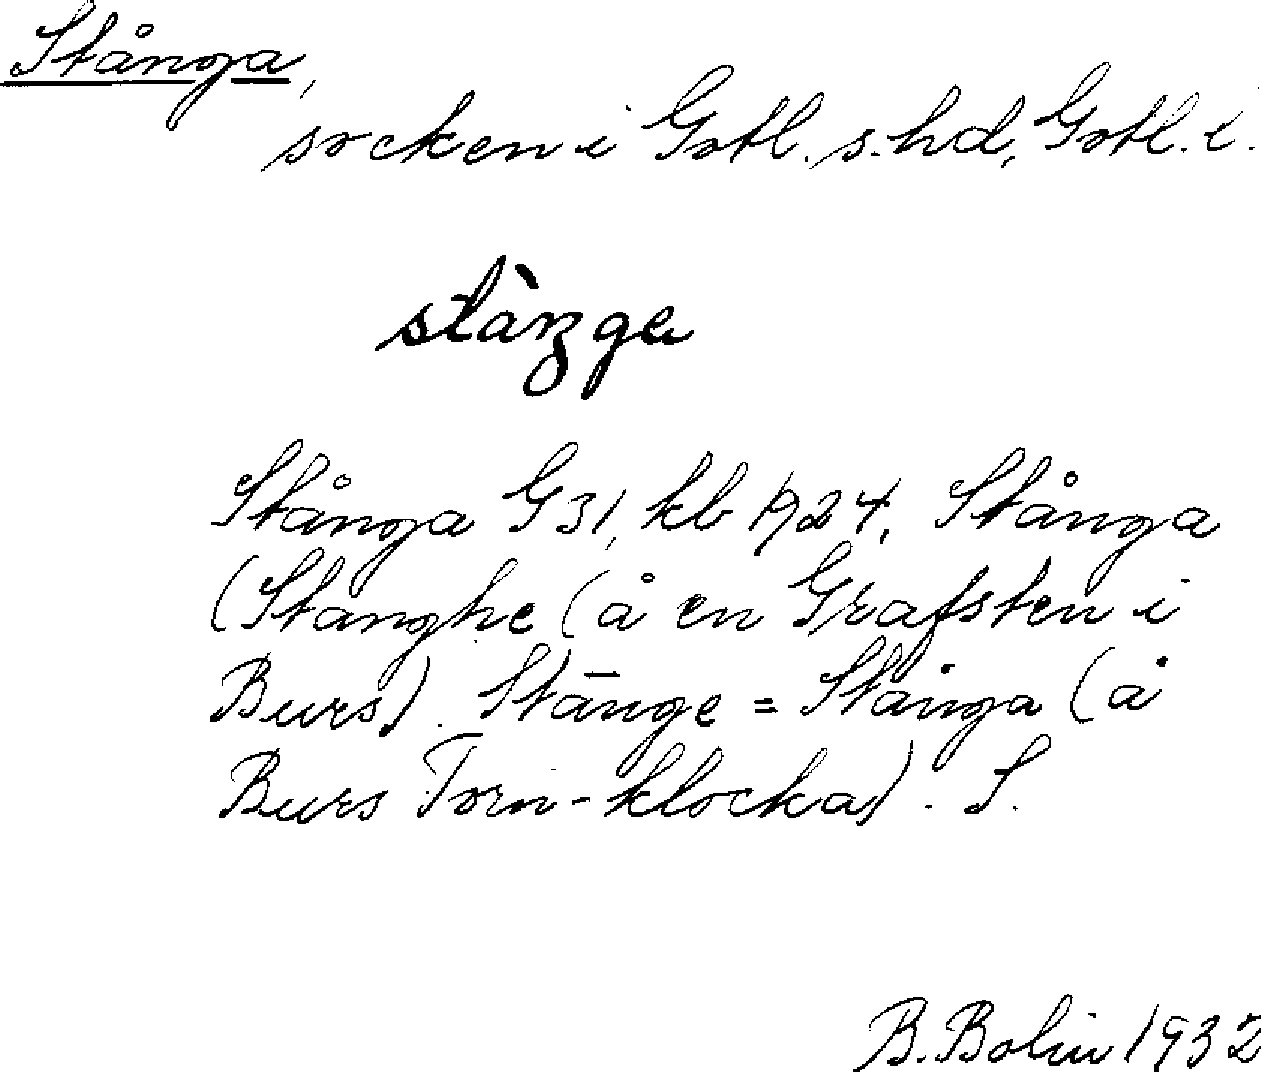 Stånga,
socken i Gotl. s. hd, Gotl. l.
Stånga G 31, kb 1924, Stånga
(Stanghe (å en Grafsten i
Burs). Stānge = Stånga (å
Burs Torn-klocka). S.
B. Bolin 1932